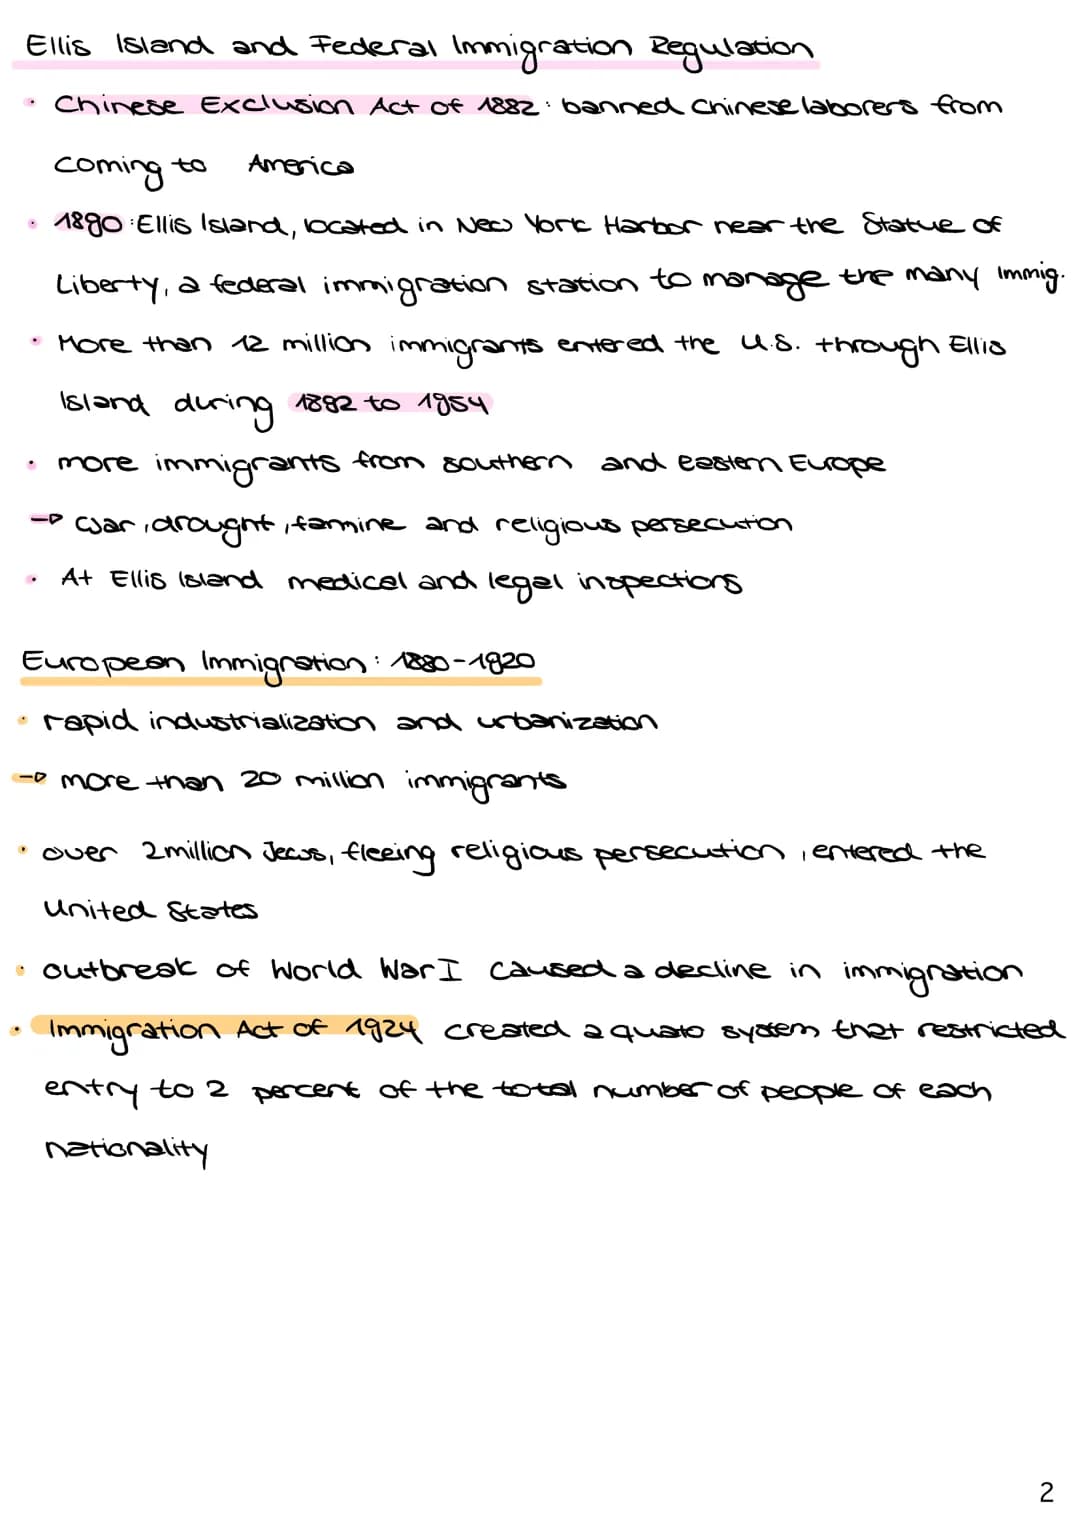 Ellis Island and Federal Immigration Regulation
• Chinese Exclusion Act of 1882: banned Chinese laborers from
coming to America
• 1890: Ellis Island, located in New York Harbor near the Statue of
Liberty, a federal immigration station to manage the many immig.
• More than 12 million immigrants entered the U.S. through Ellis
Island during 1882 to 1954
• more immigrants from southern and eastern Europe
→ war, drought, famine and religious persecution
• At Ellis Island medical and legal inspections
European Immigration: 1880-1920
• rapid industrialization and urbanization
→ more than 20 million immigrants
• over 2 million Jews, fleeing religious persecution, entered the
United States
• outbreak of World War I caused a decline in immigration
• Immigration Act of 1924 created a quato system that restricted
entry to 2 percent of the total number of people of each
nationality
2